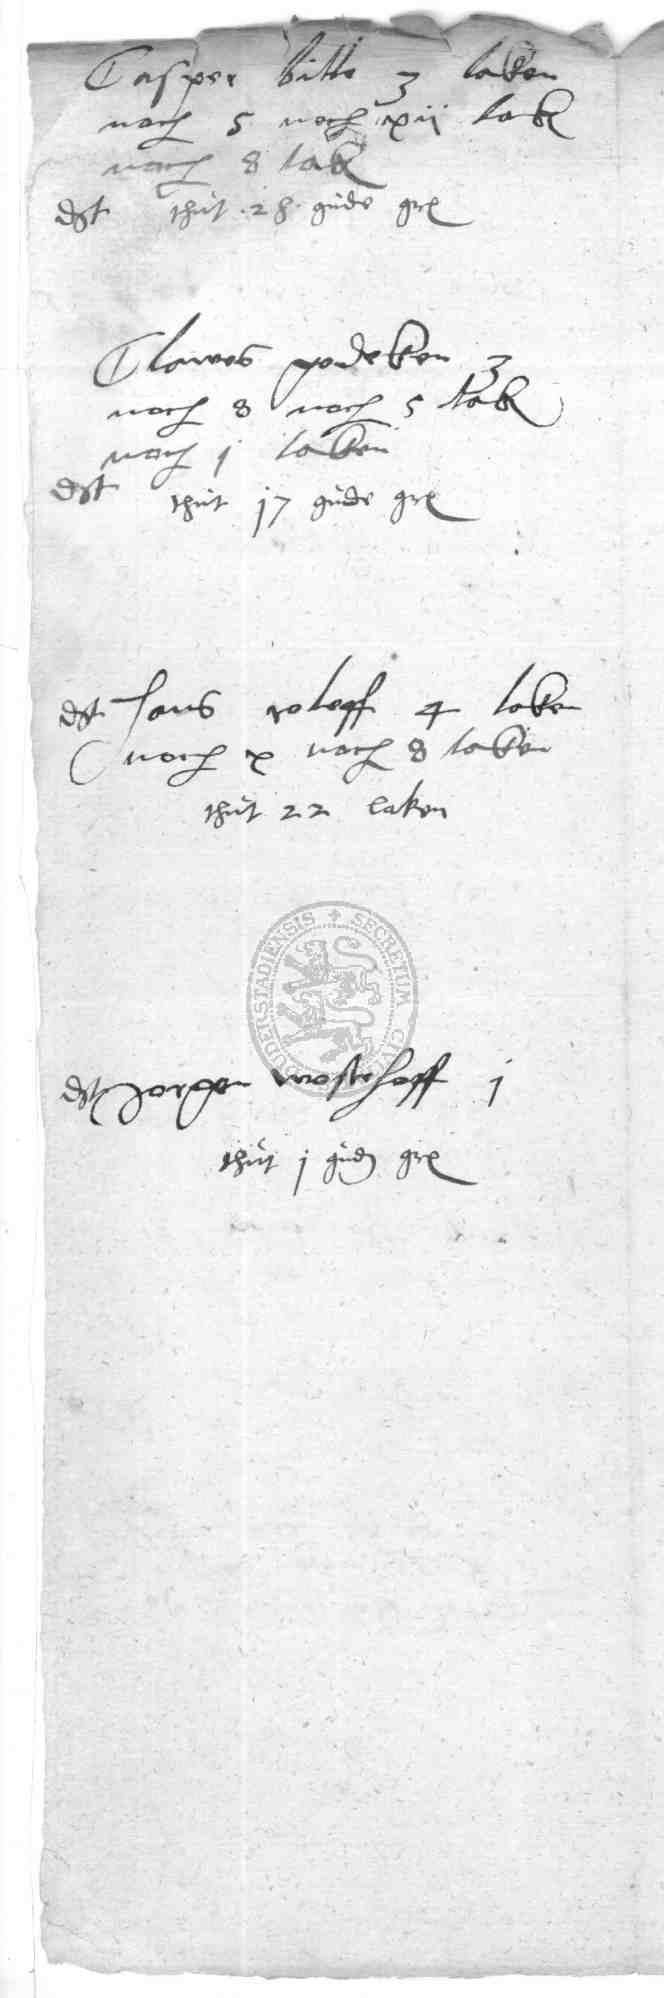 Casper bitte 3 laken
noch 5 noch xii lak
noch 8 lak
dt thut 28 gude gr
Clawes godeken 3
noch 8 noch 5 lak
noch j laken
dt thut j7 gude gr
dt Hans roleff 4 laken
noch x noch 8 laken
thut 22 laken
SECRETUM CIVI DUDERSTADIENSIS
dt Jorgen westhoff j
thut j gud gr